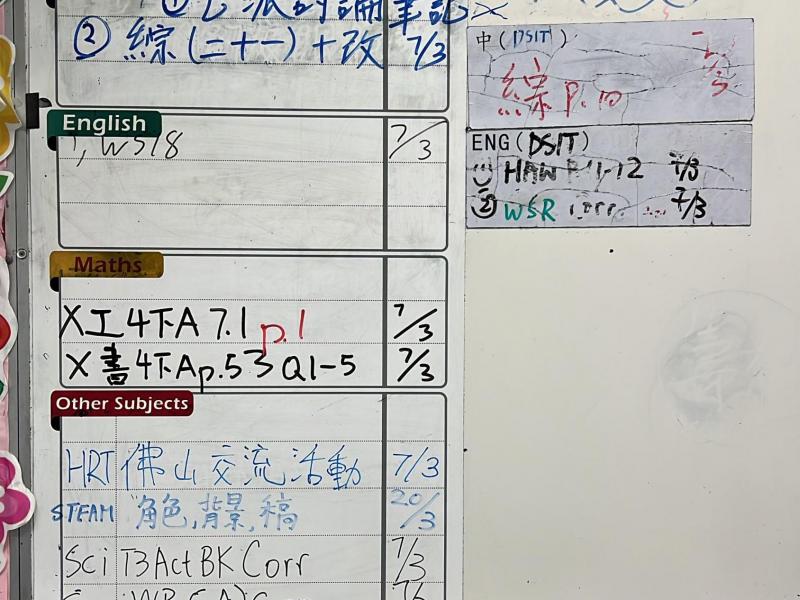 ② 綜(二十一)+改 7/3
English
WS18 7/3
Maths
X工4下A 7.1 p.1 7/3
X書4下A p.53 Q1-5 7/3
Other Subjects
HRT 佛山交流活動 7/3
STEAM 角色,背景,稿 20/3
Sci T3 Act BK Corr 7/3
中(DSIT)
綜 p.10
ENG(DSIT)
HAW 11-12 7/3
② WSR Corr. 7/3